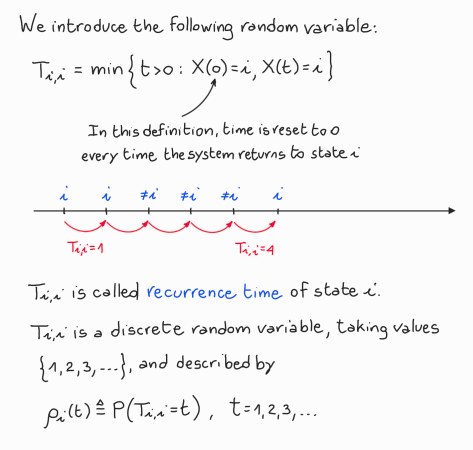 We introduce the following random variable:
T_{i,i} = min{t>0 : X(0)=i, X(t)=i}
In this definition, time is reset to 0
every time the system returns to state i
i i ≠i ≠i ≠i i
T_{i,i}=1 T_{i,i}=4
T_{i,i} is called recurrence time of state i.
T_{i,i} is a discrete random variable, taking values
{1,2,3,...}, and described by
ρ_i(t) ≜ P(T_{i,i}=t), t=1,2,3,...